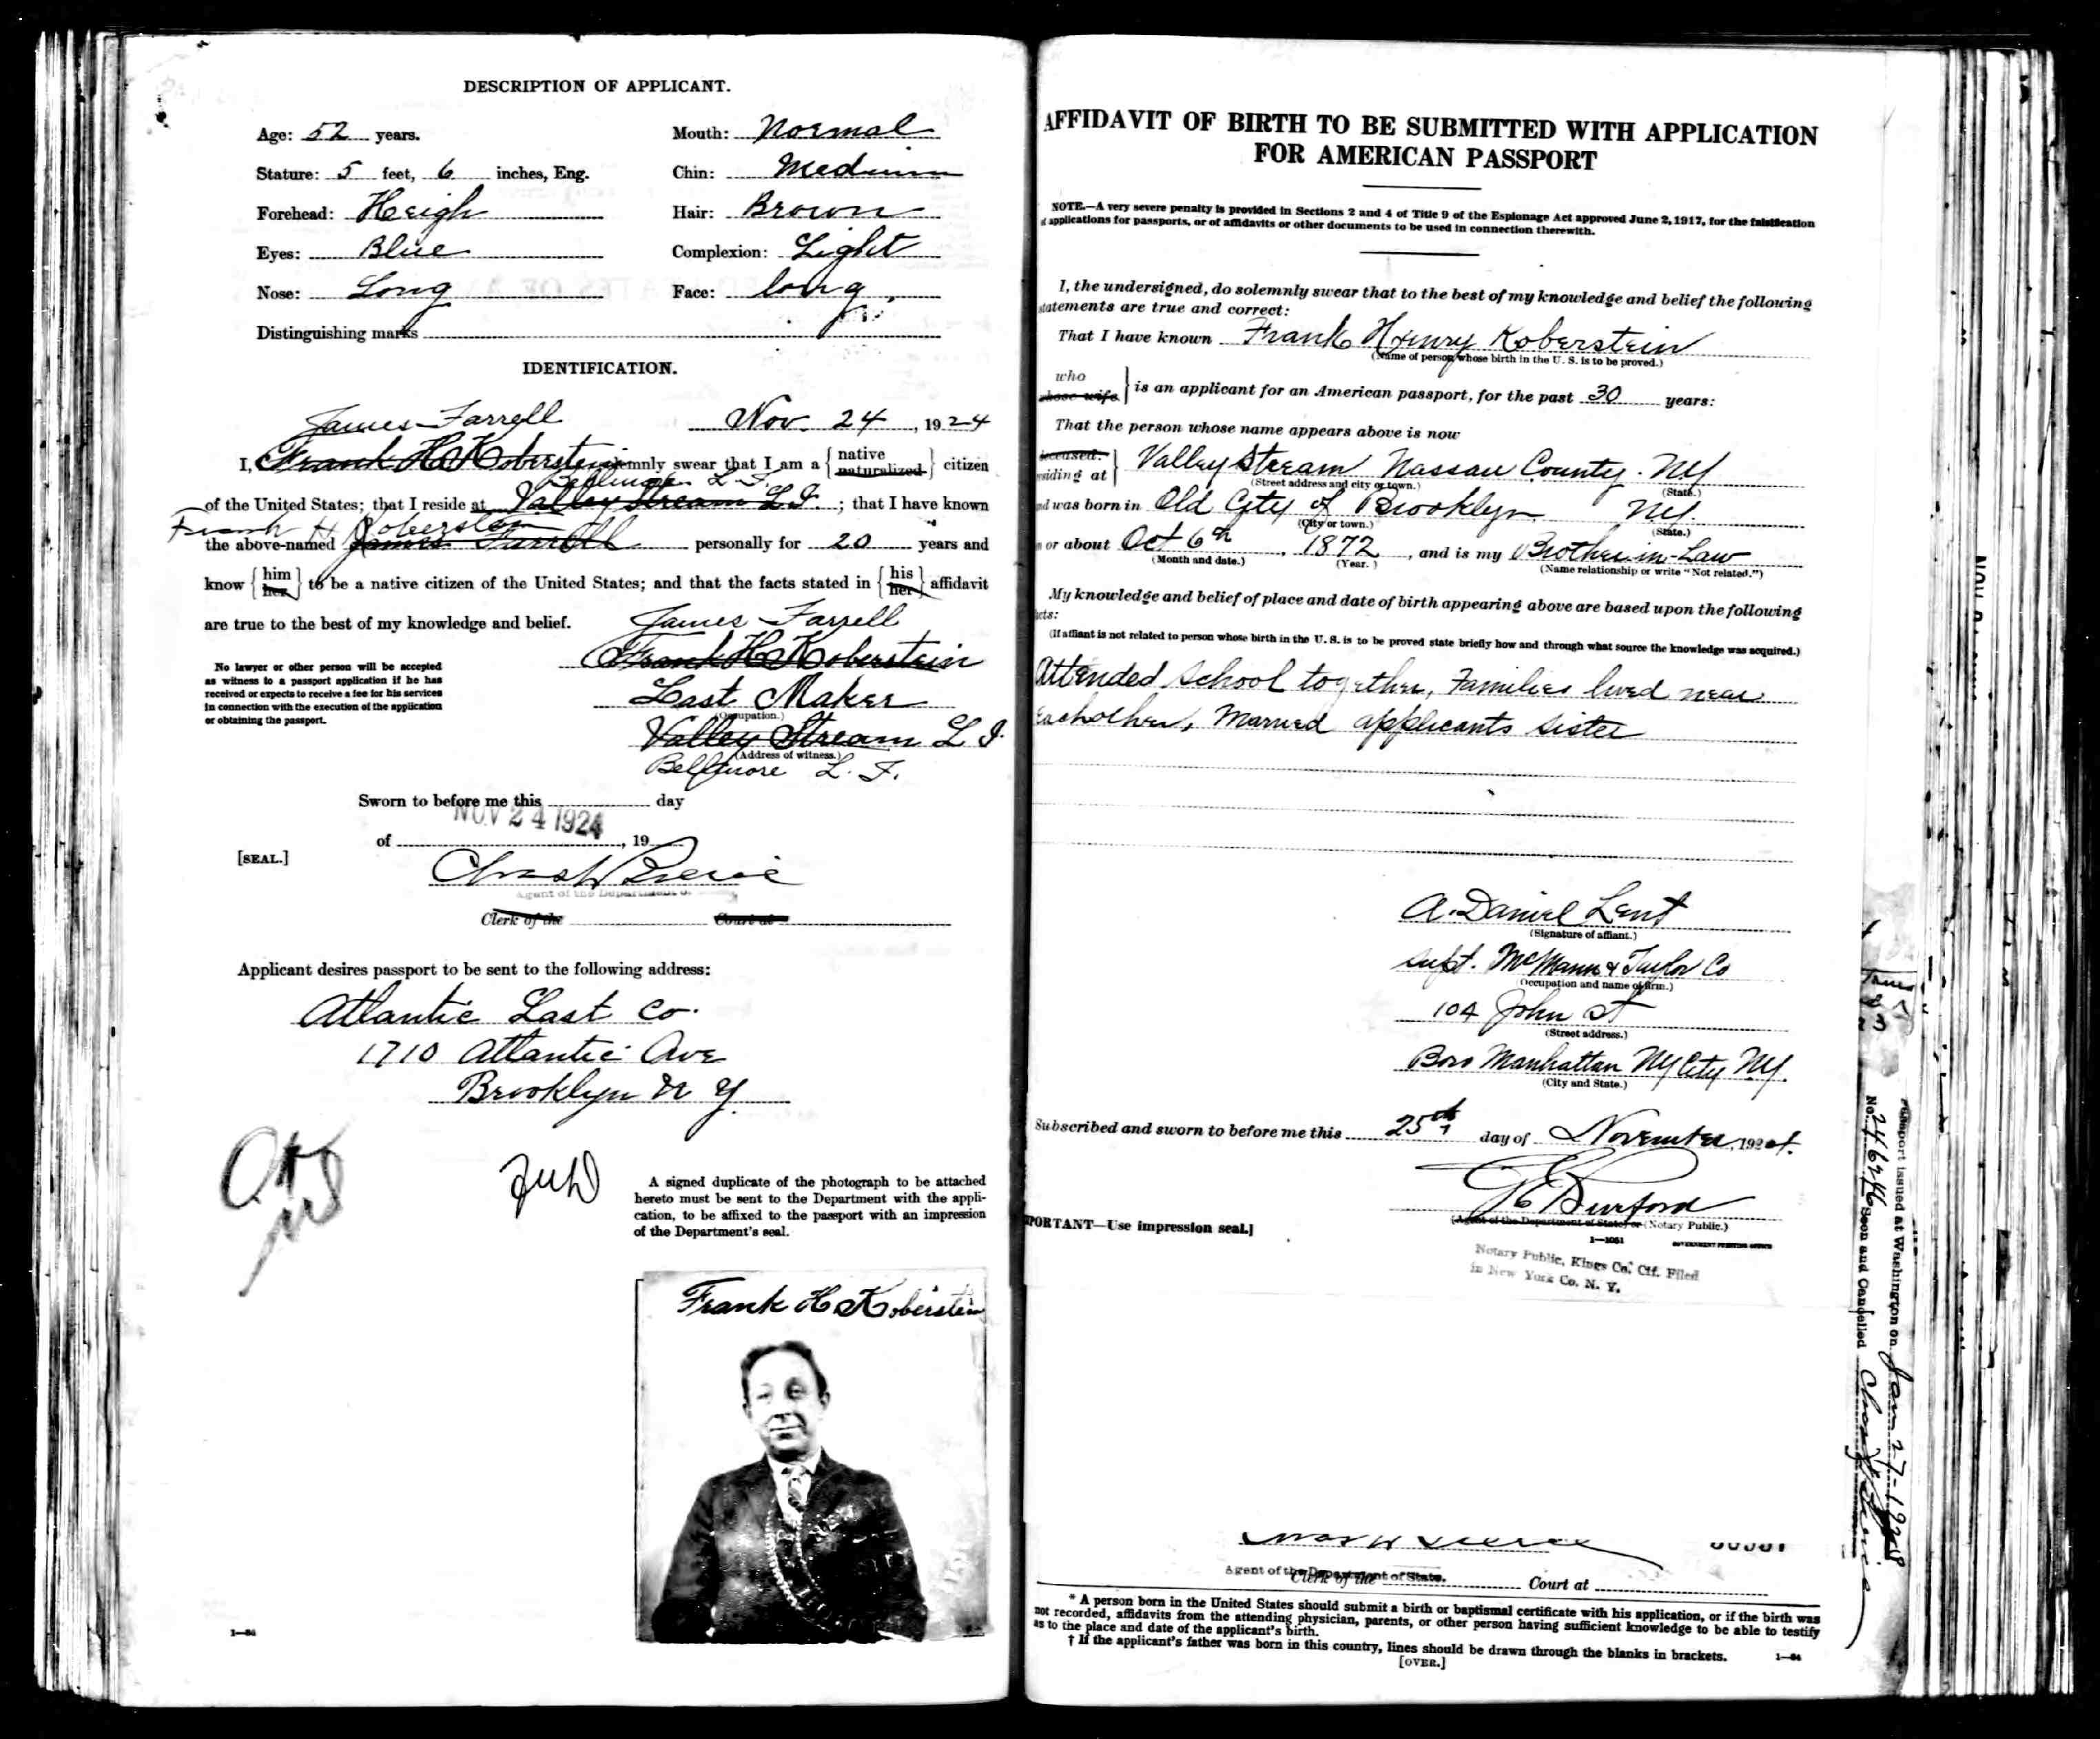 DESCRIPTION OF APPLICANT.
Age: 52 years.
Mouth: Normal
Stature: 5 feet, 6 inches, Eng.
Chin: Medium
Forehead: Heigh
Hair: Brown
Eyes: Blue
Complexion: Light
Nose: Long
Face: long
Distinguishing marks
IDENTIFICATION.
James Farrell
Nov. 24, 1924
I, Frank H Koberstein solemnly swear that I am a { native naturalized } citizen
Bellmore L. I.
of the United States; that I reside at Valley Stream L I; that I have known
Frank H Koberstein
the above-named James Farrell personally for 20 years and
know { him her } to be a native citizen of the United States; and that the facts stated in { his her } affidavit
are true to the best of my knowledge and belief.
James Farrell
Frank H Koberstein
No lawyer or other person will be accepted
as witness to a passport application if he has
received or expects to receive a fee for his services
in connection with the execution of the application
or obtaining the passport.
Last Maker
(Occupation.)
Valley Stream L I.
(Address of witness.)
Bellmore L. I.
Sworn to before me this day
NOV 24 1924
of , 19
[SEAL.]
Agent of the Department o
Clerk of the Court at
Applicant desires passport to be sent to the following address:
Atlantic Last Co.
1710 Atlantic Ave
Brooklyn N Y.
A signed duplicate of the photograph to be attached
hereto must be sent to the Department with the appli-
cation, to be affixed to the passport with an impression
of the Department's seal.
Frank H Koberstein
1—64
AFFIDAVIT OF BIRTH TO BE SUBMITTED WITH APPLICATION
FOR AMERICAN PASSPORT
NOTE.—A very severe penalty is provided in Sections 2 and 4 of Title 9 of the Espionage Act approved June 2, 1917, for the falsification
applications for passports, or of affidavits or other documents to be used in connection therewith.
I, the undersigned, do solemnly swear that to the best of my knowledge and belief the following
statements are true and correct:
That I have known Frank Henry Koberstein
(Name of person whose birth in the U. S. is to be proved.)
who
whose wife } is an applicant for an American passport, for the past 30 years:
That the person whose name appears above is now
deceased.
residing at } Valley Stream Nassau County. NY
(Street address and city or town.) (State.)
and was born in Old City of Brooklyn NY.
(City or town.) (State.)
or about Oct 6th, 1872, and is my Brother in-Law
(Month and date.) (Year.) (Name relationship or write "Not related.")
My knowledge and belief of place and date of birth appearing above are based upon the following
facts:
(If affiant is not related to person whose birth in the U. S. is to be proved state briefly how and through what source the knowledge was acquired.)
Attended school together, Families lived near
eachother, Married applicants sister
A. Daniel Lent
(Signature of affiant.)
Supt. McMann & Taylor Co
(Occupation and name of firm.)
104 John St
(Street address.)
Boro Manhattan NY City NY.
(City and State.)
Subscribed and sworn to before me this 25th day of November, 1924.
(Agent of the Department of State) or (Notary Public.)
IMPORTANT—Use impression seal.]
1—1061 GOVERNMENT PRINTING OFFICE
Notary Public, Kings Co. Ctf. Filed
in New York Co. N. Y.
Agent of the Department of State.
Clerk of the Court at
* A person born in the United States should submit a birth or baptismal certificate with his application, or if the birth was
not recorded, affidavits from the attending physician, parents, or other person having sufficient knowledge to be able to testify
as to the place and date of the applicant's birth.
† If the applicant's father was born in this country, lines should be drawn through the blanks in brackets. 1—64
[OVER.]
Passport issued at Washington on Jan 27-1928
No. 246246 Seen and Cancelled